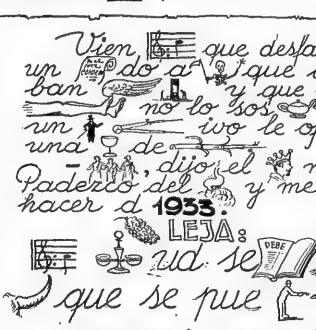 Vien que desfa
un do, a que
ban y que
no lo sos
un ivo le o
una de
-, dijo el
Padezco del y me
hacer a 1933.
LEJA:
ud. se DEBE
que se pue